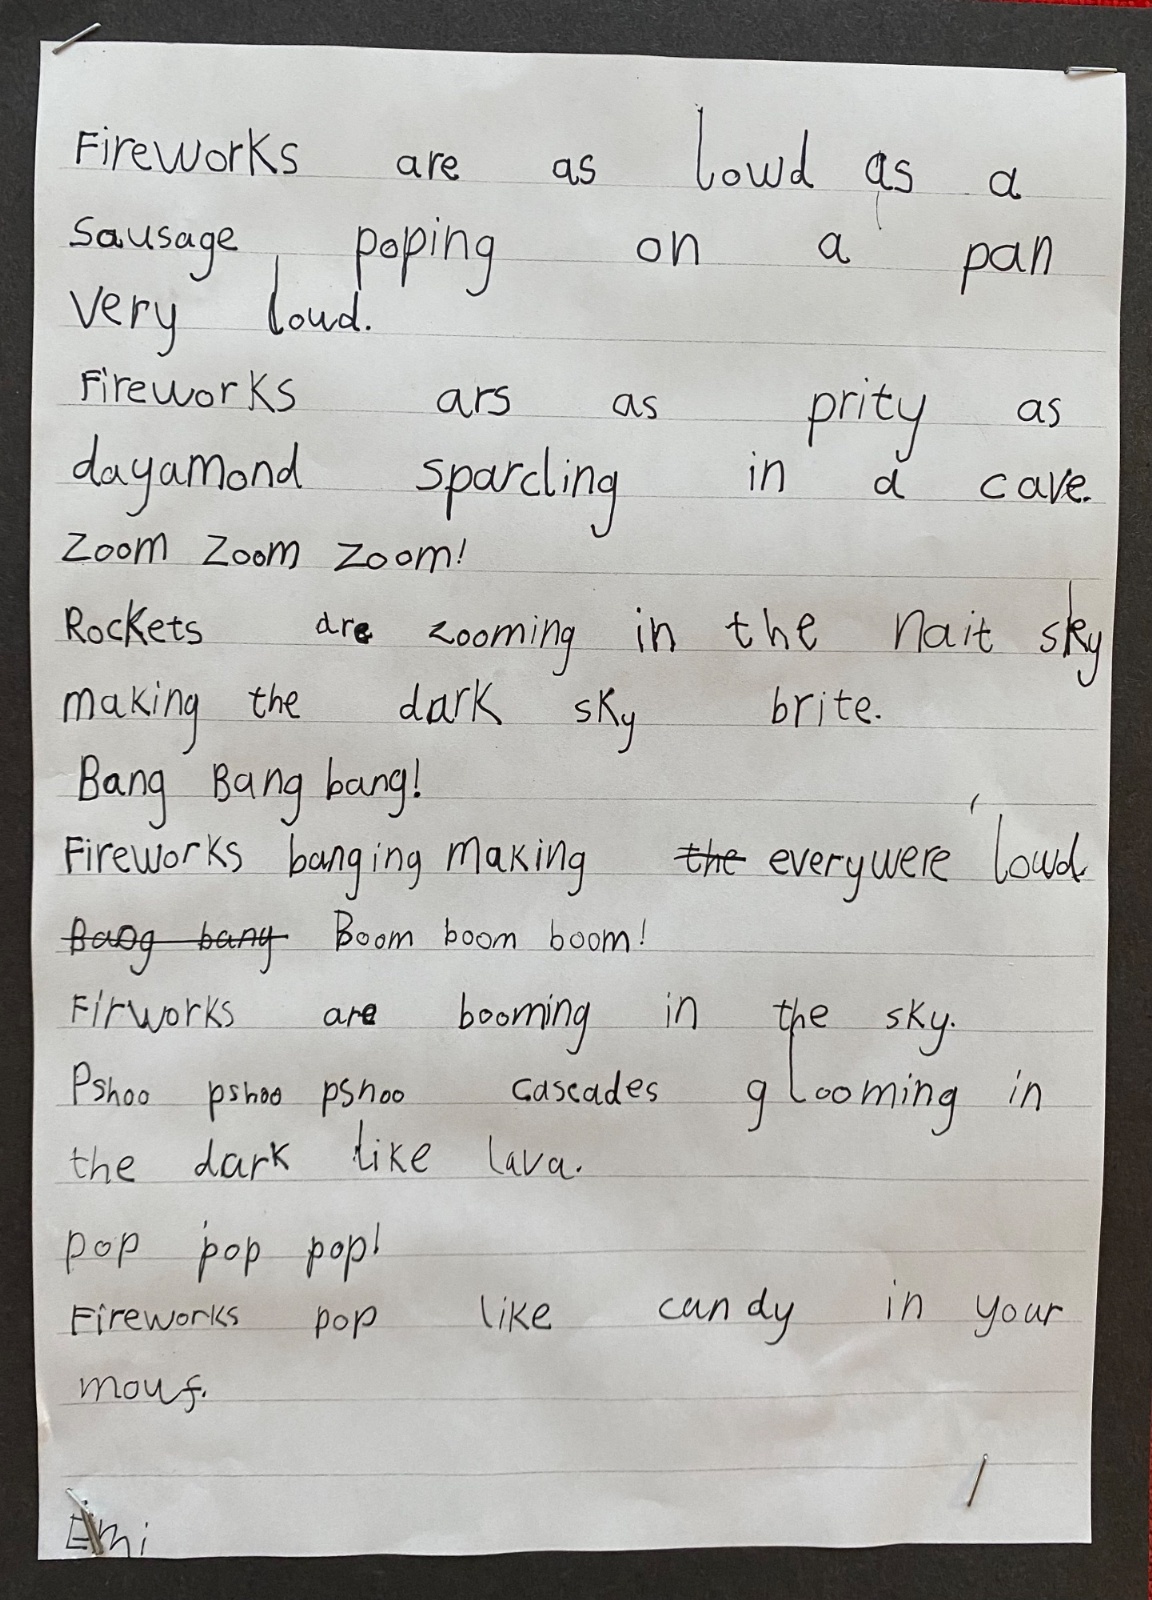 Fireworks are as lowd as a
sausage poping on a pan
very loud.
Fireworks ars as prity as
dayamond sparcling in a cave.
Zoom Zoom zoom!
Rockets are zooming in the nait sky
making the dark sky brite.
Bang Bang bang!
Fireworks banging making the everywere lowd.
Bang bang Boom boom boom!
Firworks are booming in the sky.
Pshoo pshoo pshoo cascades glooming in
the dark like lava.
pop pop pop!
Fireworks pop like candy in your
mouf.
Emi